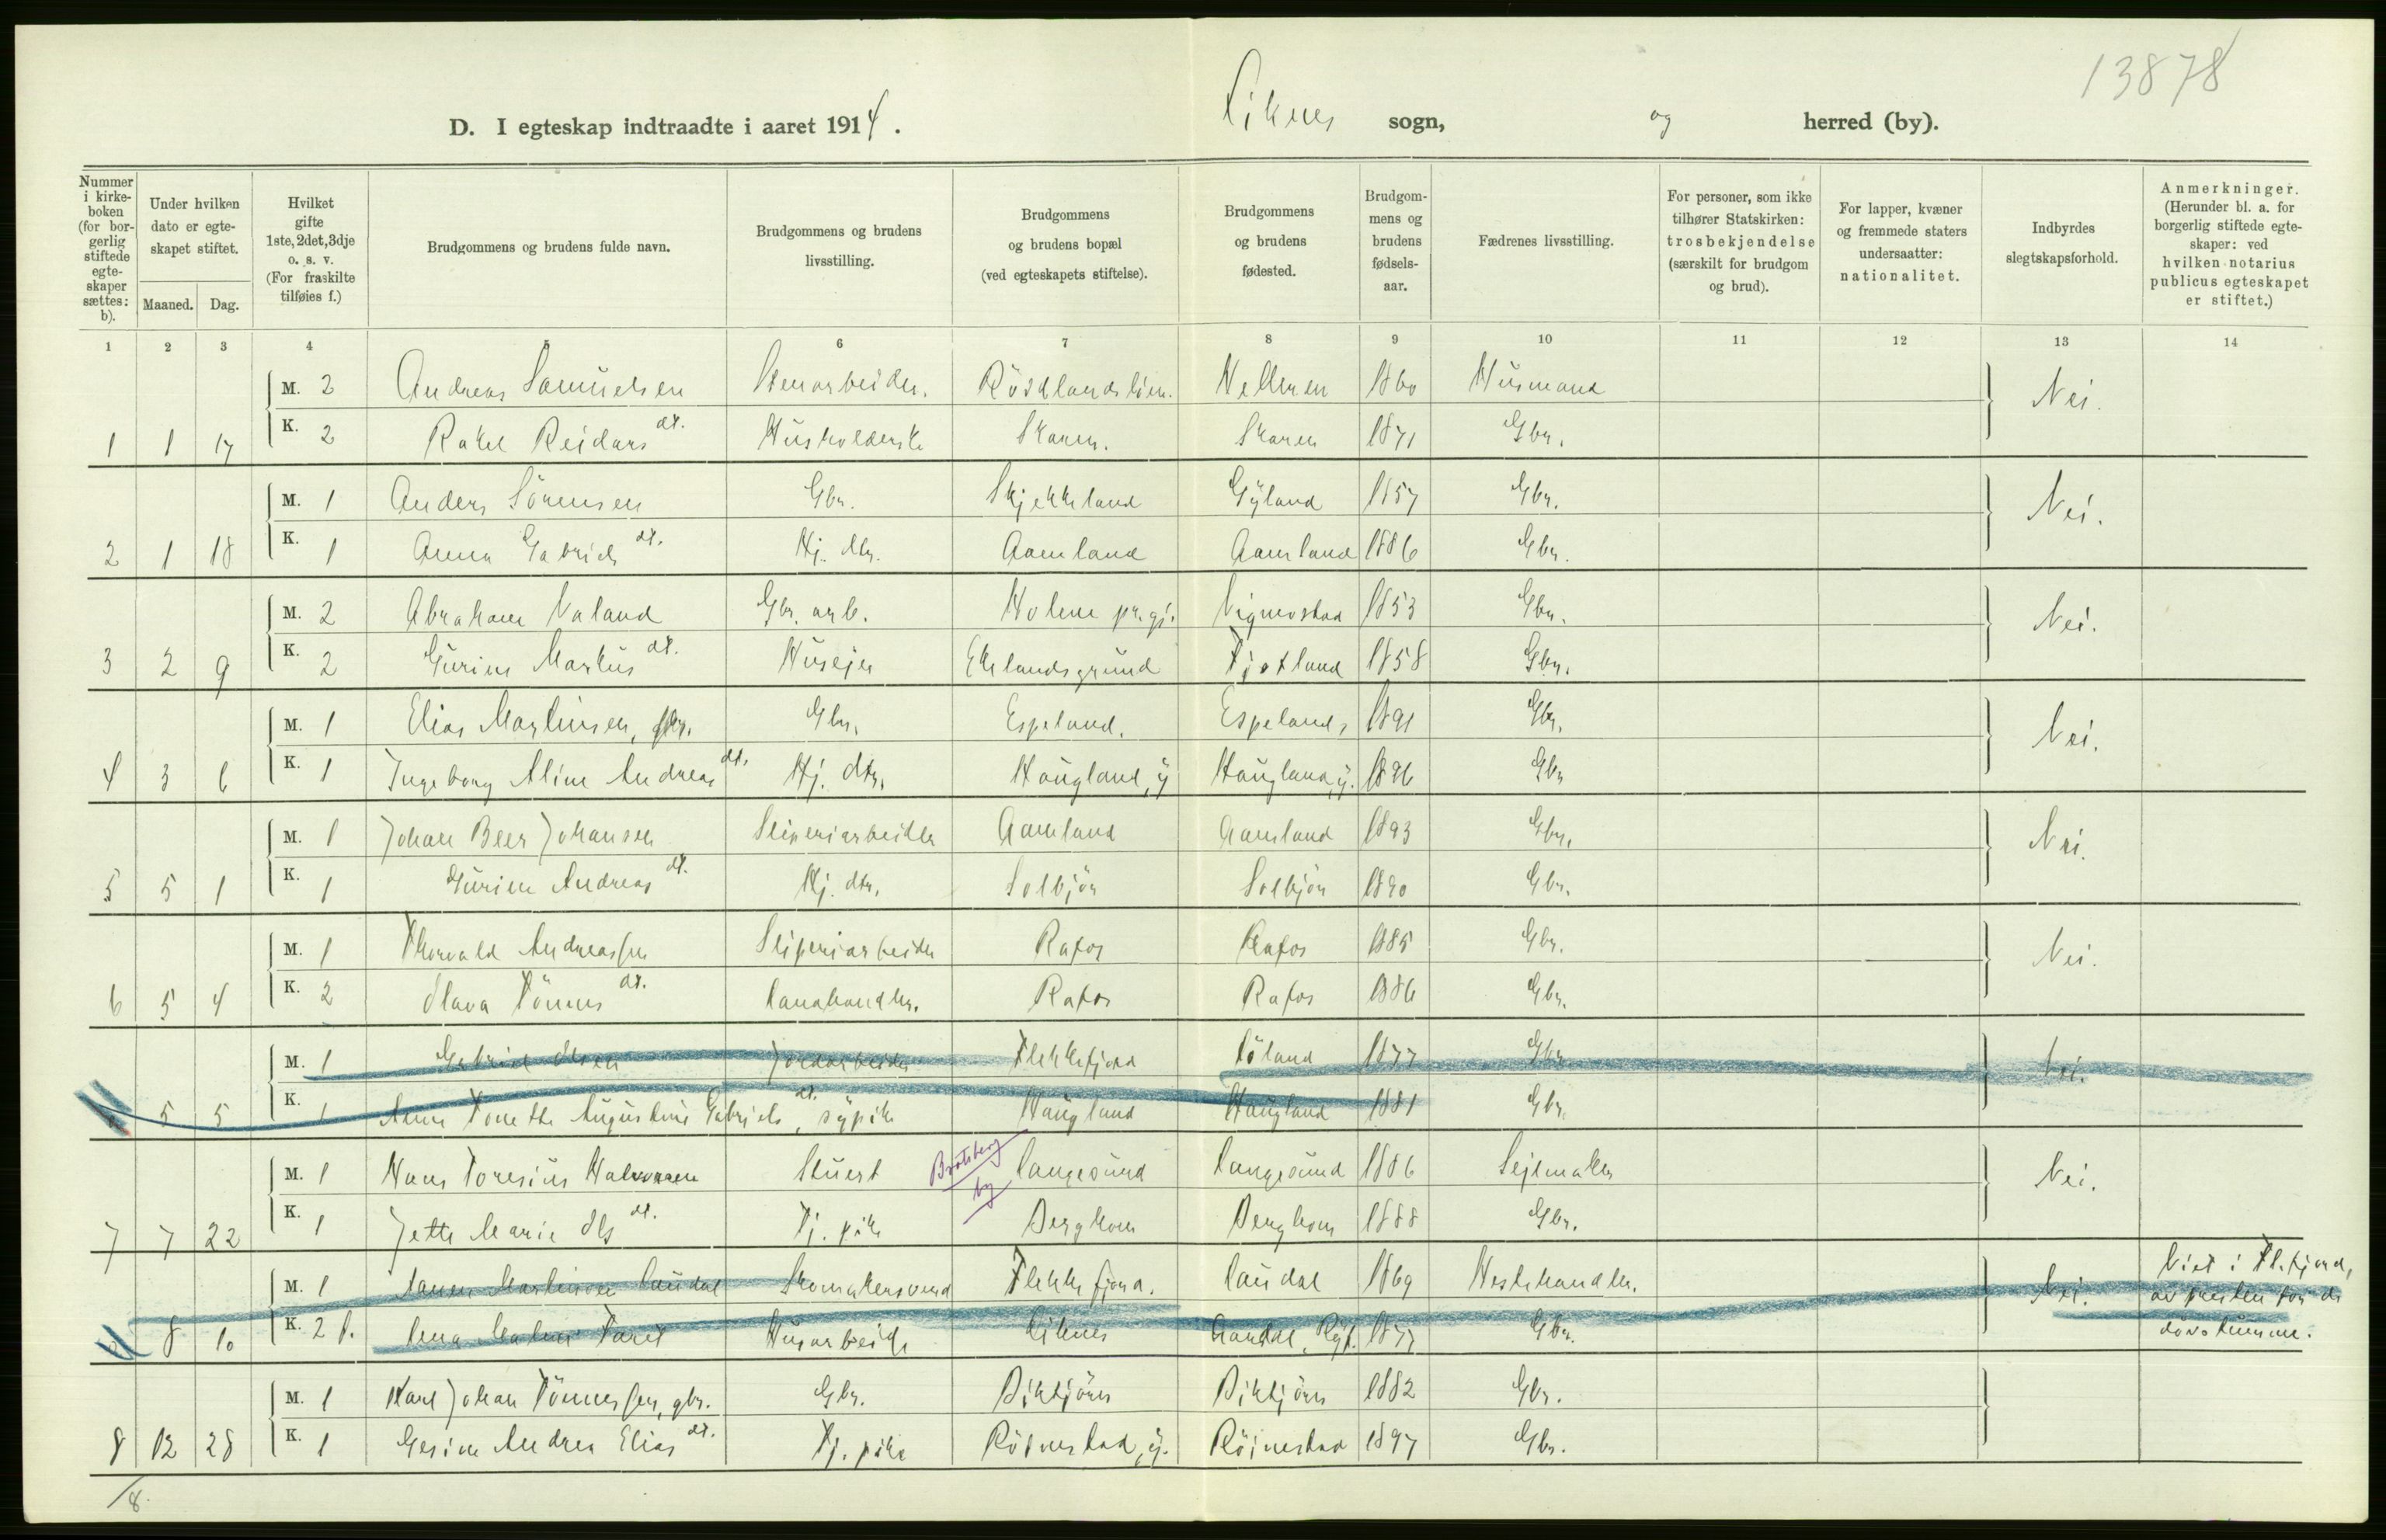 13878
D. I egteskap indtraadte i aaret 1914. Liknes sogn, og herred (by).
Nummer i kirkeboken (for borgerlig stiftede egteskaper sættes: b).
Under hvilken dato er egteskapet stiftet.
Maaned. Dag.
Hvilket gifte 1ste, 2det, 3dje o. s. v. (For fraskilte tilføies f.)
Brudgommens og brudens fulde navn.
Brudgommens og brudens livsstilling.
Brudgommens og brudens bopæl (ved egteskapets stiftelse).
Brudgommens og brudens fødested.
Brudgommens og brudens fødselsaar.
Fædrenes livsstilling.
For personer, som ikke tilhører Statskirken: trosbekjendelse (særskilt for brudgom og brud).
For lapper, kvæner og fremmede staters undersaatter: nationalitet.
Indbyrdes slegtskapsforhold.
Anmerkninger. (Herunder bl. a. for borgerlig stiftede egteskaper: ved hvilken notarius publicus egteskapet er stiftet.)
1 2 3 4 5 6 7 8 9 10 11 12 13 14
M. 2 Andreas Samuelsen Stenarbeider. Helleren 1860 Husmand Nei.
1 1 17 K. 2 Rakel Reidars dt. Husholderske Skaren. Skaren 1871 Gbr.
M. 1 Anders Sörensen Gbr. Skjekkeland Gyland 1857 Gbr. Nei.
2 1 18 K. 1 Anna Gabriels dt. Hj. dtr. Aamland Aamland 1886 Gbr.
M. 2 Abraham Valand Gbr. arb. Holum pr.gj. Vigmostad 1853 Gbr. Nei.
3 2 9 K. 2 Gurine Markus dt. Huseier Eklandsgrund Fjotland 1858 Gbr.
M. 1 Elias Martinsen, gbr. Gbr. Espeland. Espeland, 1891 Gbr. Nei.
4 3 6 K. 1 Ingeborg Aline Andreas dt. Hj. dtr. Haugland, y Haugland, y. 1896 Gbr
M. 1 Johan Beer Johansen Sliperiarbeider Aamland Aamland 1893 Gbr. Nei.
5 5 1 K. 1 Gurine Andreas dt. Hj. dtr. Solbjör Solbjör 1890 Gbr.
M. 1 Thorvald Andreassen Sliperiarbeider Rafos Rafos 1885 Gbr. Nei.
6 5 4 K. 2 Olava Tönnes dt. Landhandler. Rafos Rafos 1886 Gbr.
M. 1 Gabriel Olsen Jordarbeider Flekkefjord 1877 Gbr Nei.
5 5 K. 1 Anne Tonette Augustine Gabriels dt., sypike Haugland Haugland 1881 Gbr.
M. 1 Hans Toresius Halvorsen Stuert Bratsberg by Langesund Langesund 1886 Sejlmaker Nei.
7 7 22 K. 1 Jette Marie Ols dt. Tj. pike Berghom Berghom 1888 Gbr.
M. 1 Martinsen Laudal Skomakersvend Flekkefjord. Laudal 1869 Hestehandler. Nei. Viet i Fl.fjord,
8 10 K. 2 f. Husarbeide Liknes 1877 Gbr. av presten for de
døvstumme.
M. 1 Karl Johan Tönnessen, gbr. Gbr. Birkjörn Birkjörn 1882 Gbr.
8 12 28 K. 1 Gesine Andrea Elias dt. Tj. pike Röinestad, y. Röinestad 1897 Gbr.
/8.